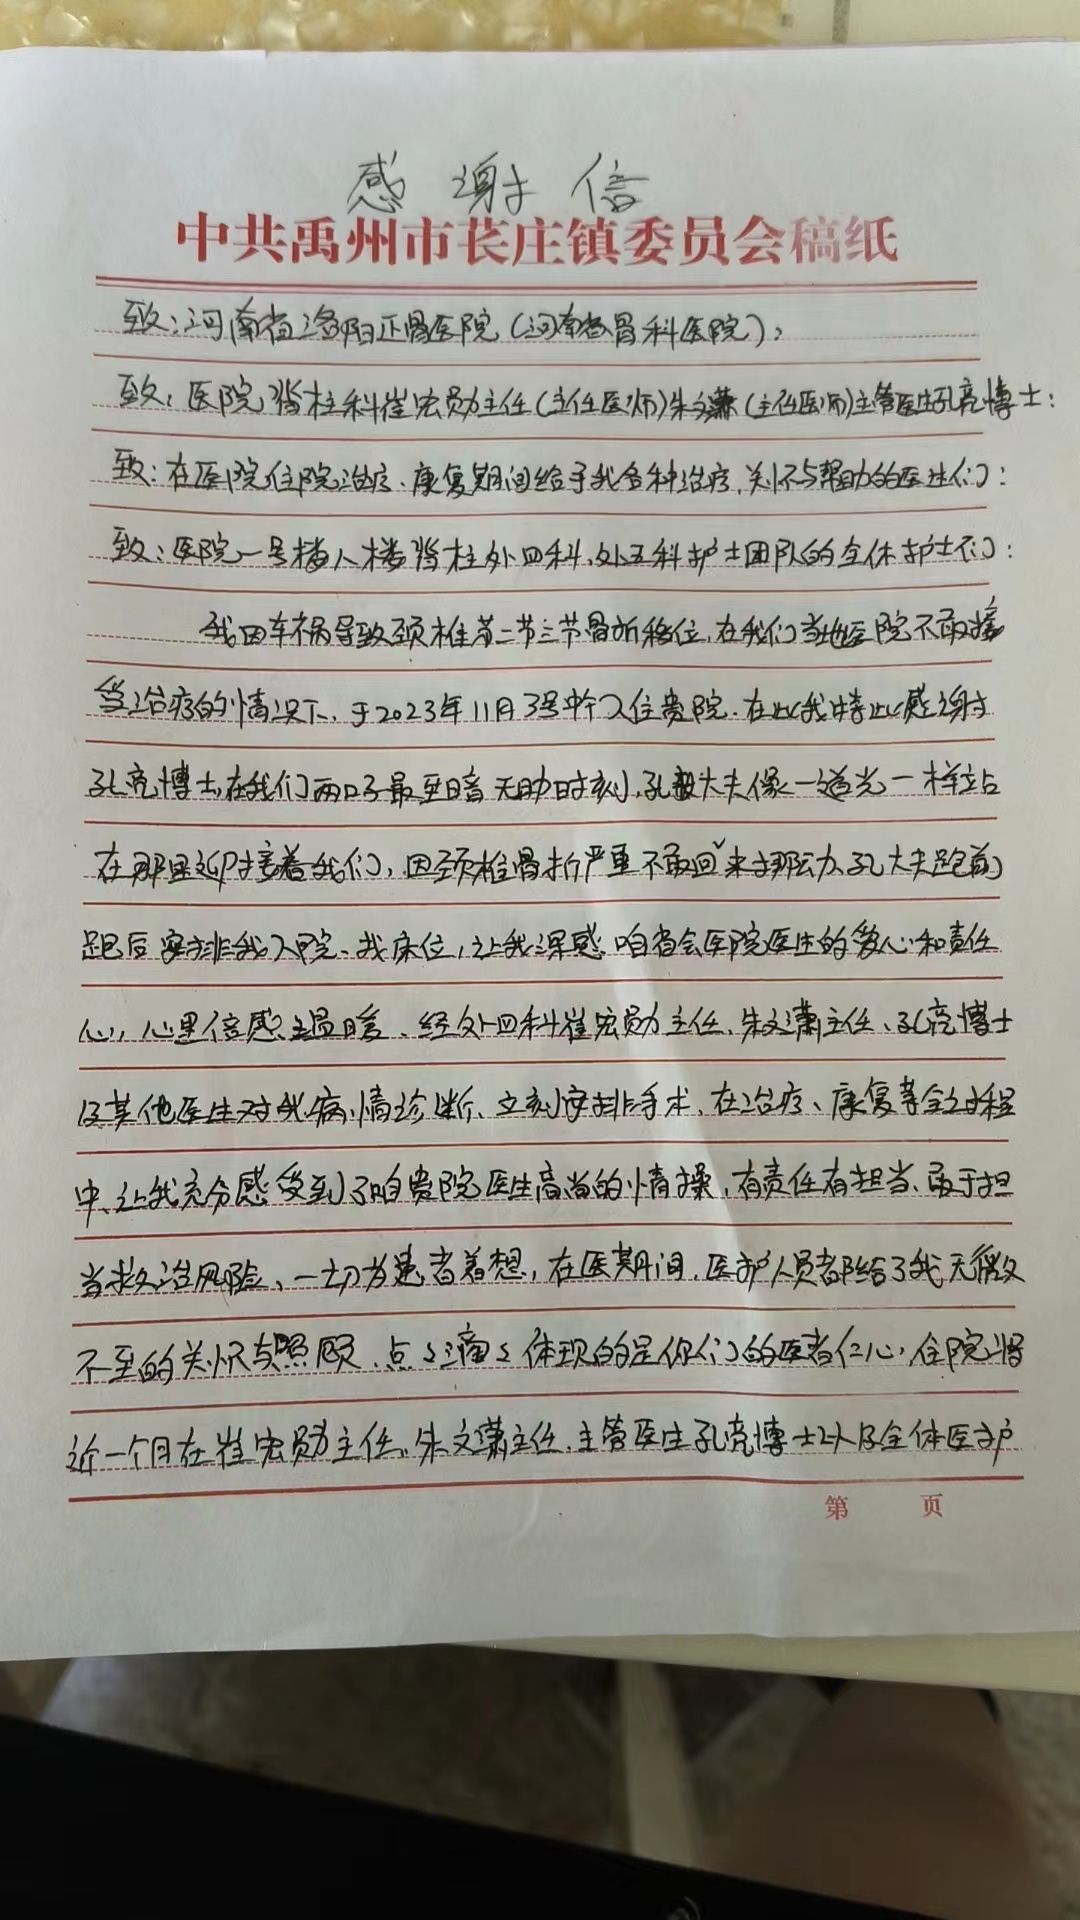 感谢信
中共禹州市苌庄镇委员会稿纸
致：河南省洛阳正骨医院（河南省骨科医院）：
致：医院脊柱科崔宏勋主任（主任医师）朱文潇（主任医师）主管医生孔亮博士：
致：在医院住院治疗、康复期间给予我各种治疗、关怀与帮助的医生们：
致：医院一号楼八楼脊柱外四科、外五科护士团队的全体护士们：
我因车祸导致颈椎第二节三节骨折移位，在我们当地医院不敢接
受治疗的情况下，于2023年11月3号中午入住贵院．在此我特此感谢
孔亮博士，在我们两口子最至暗无助时刻，孔大夫像一道光一样站
在那里迎接着我们，因颈椎骨折严重不敢回来挪动、孔大夫跑前
跑后安排我入院、找床位，让我深感咱省会医院医生的爱心和责任
心，心里倍感温暖、经外四科崔宏勋主任、朱文潇主任、孔亮博士
及其他医生对我病情诊断、立刻安排手术，在治疗、康复等全过程
中，让我充分感受到了咱贵院医生高尚的情操，有责任有担当、敢于担
当救治风险、一切为患者着想，在医期间，医护人员都给了我无微
不至的关怀与照顾、点点滴滴体现的是你们的医者仁心，住院将
近一个月在崔宏勋主任、朱文潇主任、主管医生孔亮博士以及全体医护
第 页